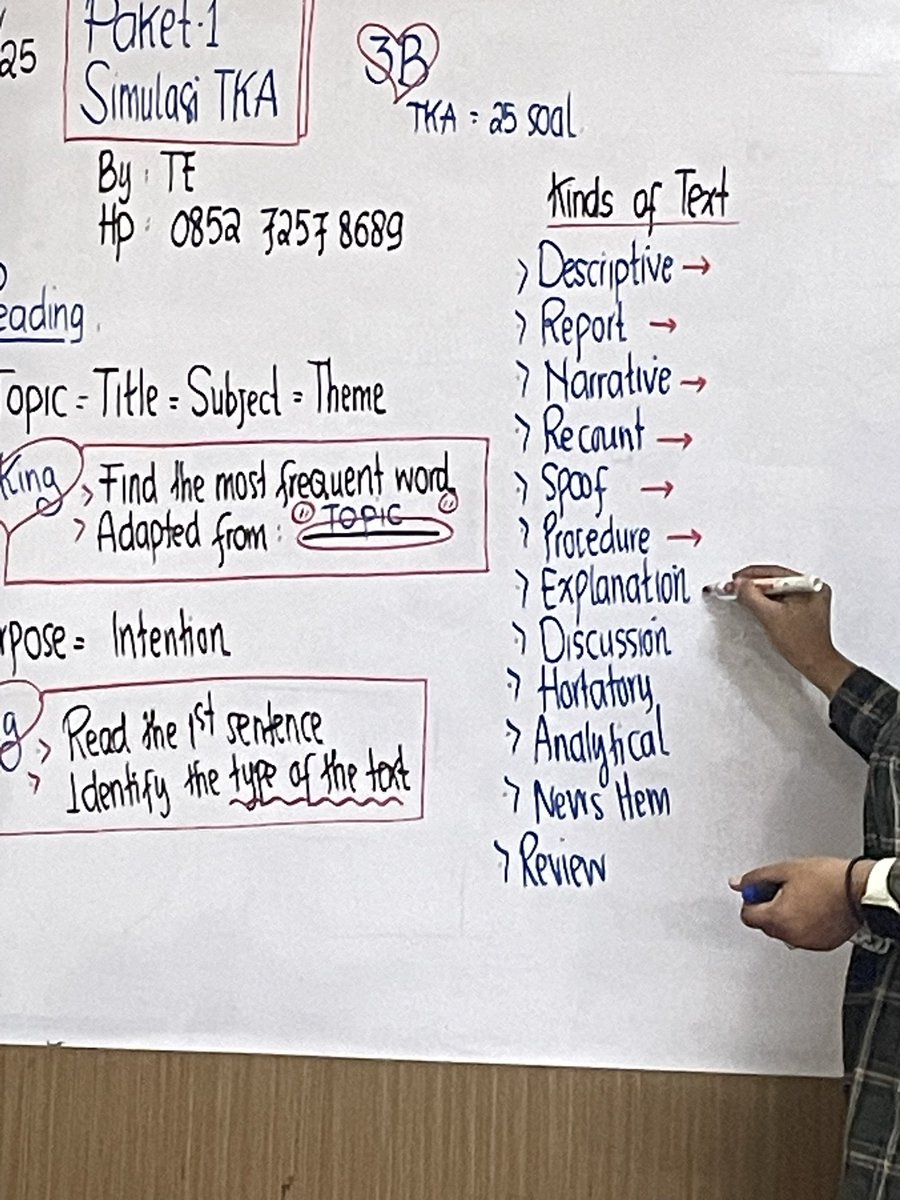 25
Paket-1
Simulasi TKA
3B
TKA = 25 soal
By : TE
Hp : 0852 7257 8689
eading
Topic = Title = Subject = Theme
King
> Find the most frequent word
> Adapted from : TOPIC
rpose = Intention
g
> Read the 1st sentence
> Identify the type of the text
Kinds of Text
> Descriptive →
> Report →
> Narrative →
> Recount →
> Spoof →
> Procedure →
> Explanation
> Discussion
> Hortatory
> Analytical
> News Item
> Review